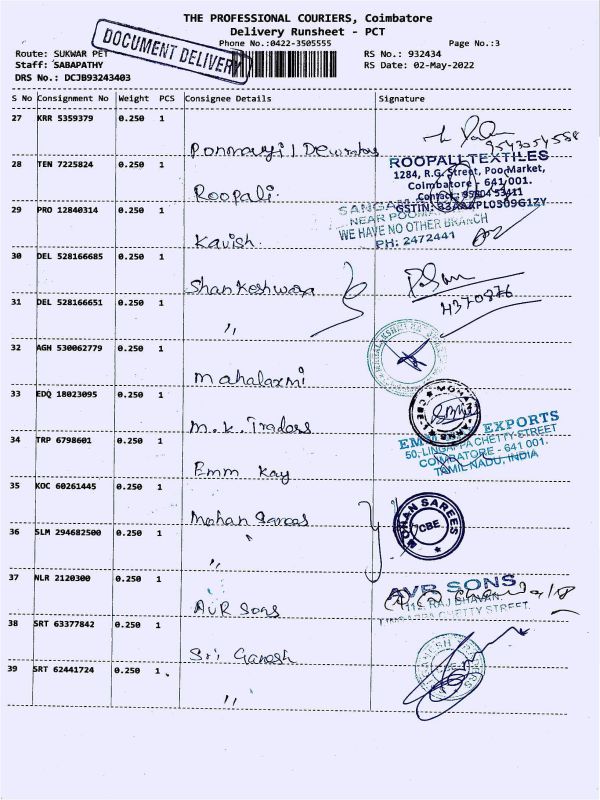 THE PROFESSIONAL COURIERS, Coimbatore
Delivery Runsheet - PCT
DOCUMENT DELIVERY
Phone No.:0422-3505555
Page No.:3
Route: SUKWAR PET
RS No.: 932434
Staff: SABAPATHY
RS Date: 02-May-2022
DRS No.: DCJB93243403
S No Consignment No Weight PCS Consignee Details Signature
27 KRR 5359379 0.250 1
9543054558
28 TEN 7225824 0.250 1 Roopali.
ROOPALI TEXTILES
1284, R.G. Street, Poo Market,
Coimbatore - 641 001.
Contact: 95804 53411
29 PRO 12840314 0.250 1 Kavish.
NEAR POOMA
WE HAVE NO OTHER BRANCH
PH: 2472441
30 DEL 528166685 0.250 1 Shankeshwara
31 DEL 528166651 0.250 1 "
32 AGH 530062779 0.250 1 mahalaxmi
33 EDQ 18023095 0.250 1 M.K. Traders
34 TRP 6798601 0.250 1 Emm Kay
EXPORTS
50, LINGAPPA CHETTY STREET
COIMBATORE - 641 001.
TAMIL NADU, INDIA
35 KOC 60261445 0.250 1 Mohan Sarees
MOHAN SAREES
CBE
36 SLM 294682500 0.250 1 "
37 NLR 2120300 0.250 1 AVR Sons
AVR SONS
115, RAJ BHAVAN,
CHETTY STREET,
38 SRT 63377842 0.250 1 Sri Ganesh
39 SRT 62441724 0.250 1 "